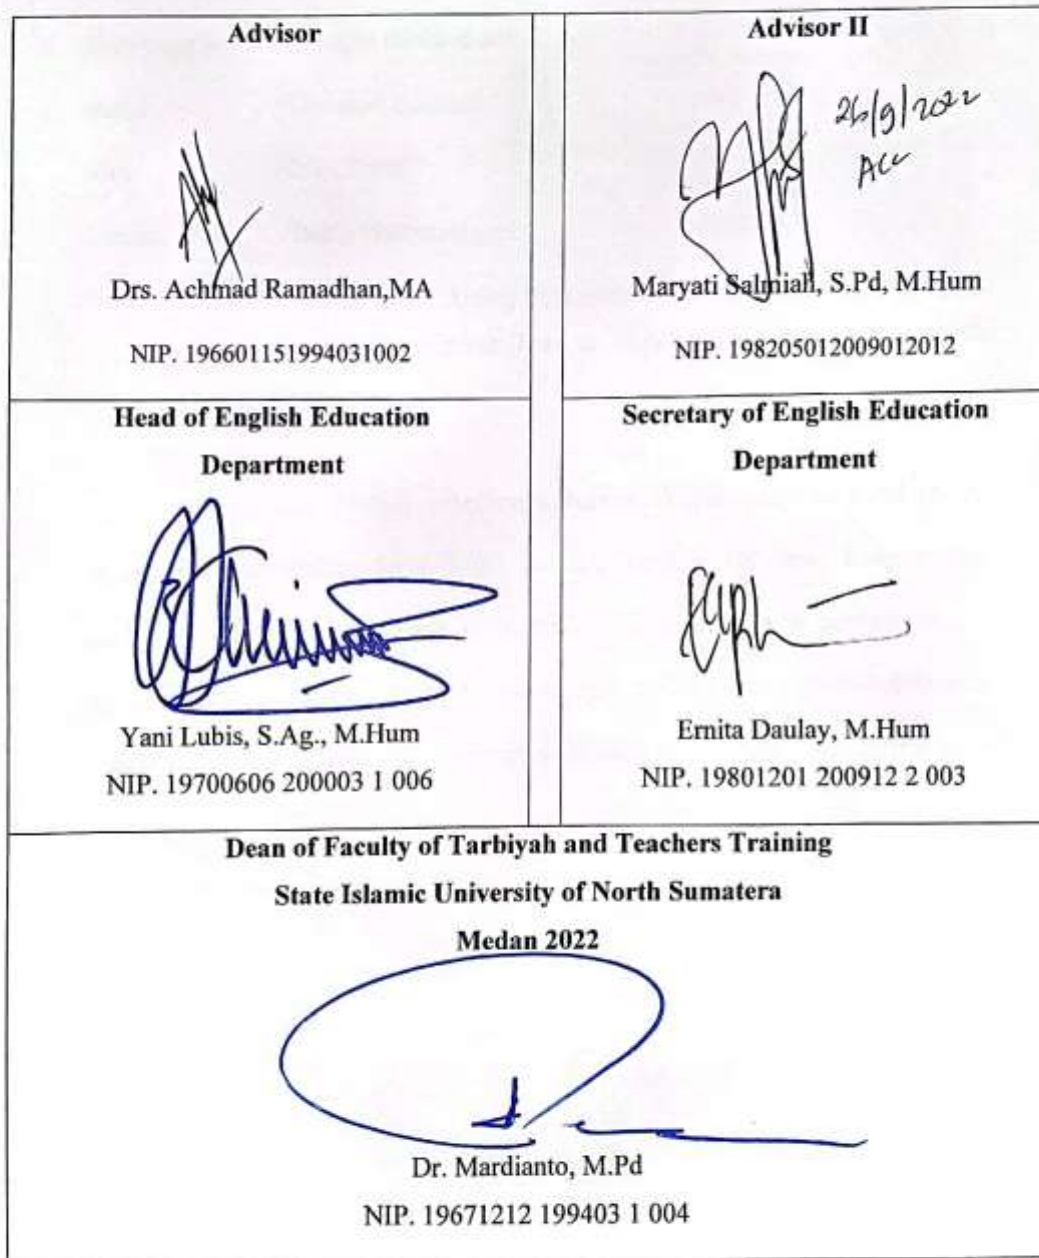 Advisor
Drs. Achmad Ramadhan,MA
NIP. 196601151994031002
Advisor II
26/9/2022
Acc
Maryati Salmiah, S.Pd, M.Hum
NIP. 198205012009012012
Head of English Education
Department
Yani Lubis, S.Ag., M.Hum
NIP. 19700606 200003 1 006
Secretary of English Education
Department
Ernita Daulay, M.Hum
NIP. 19801201 200912 2 003
Dean of Faculty of Tarbiyah and Teachers Training
State Islamic University of North Sumatera
Medan 2022
Dr. Mardianto, M.Pd
NIP. 19671212 199403 1 004